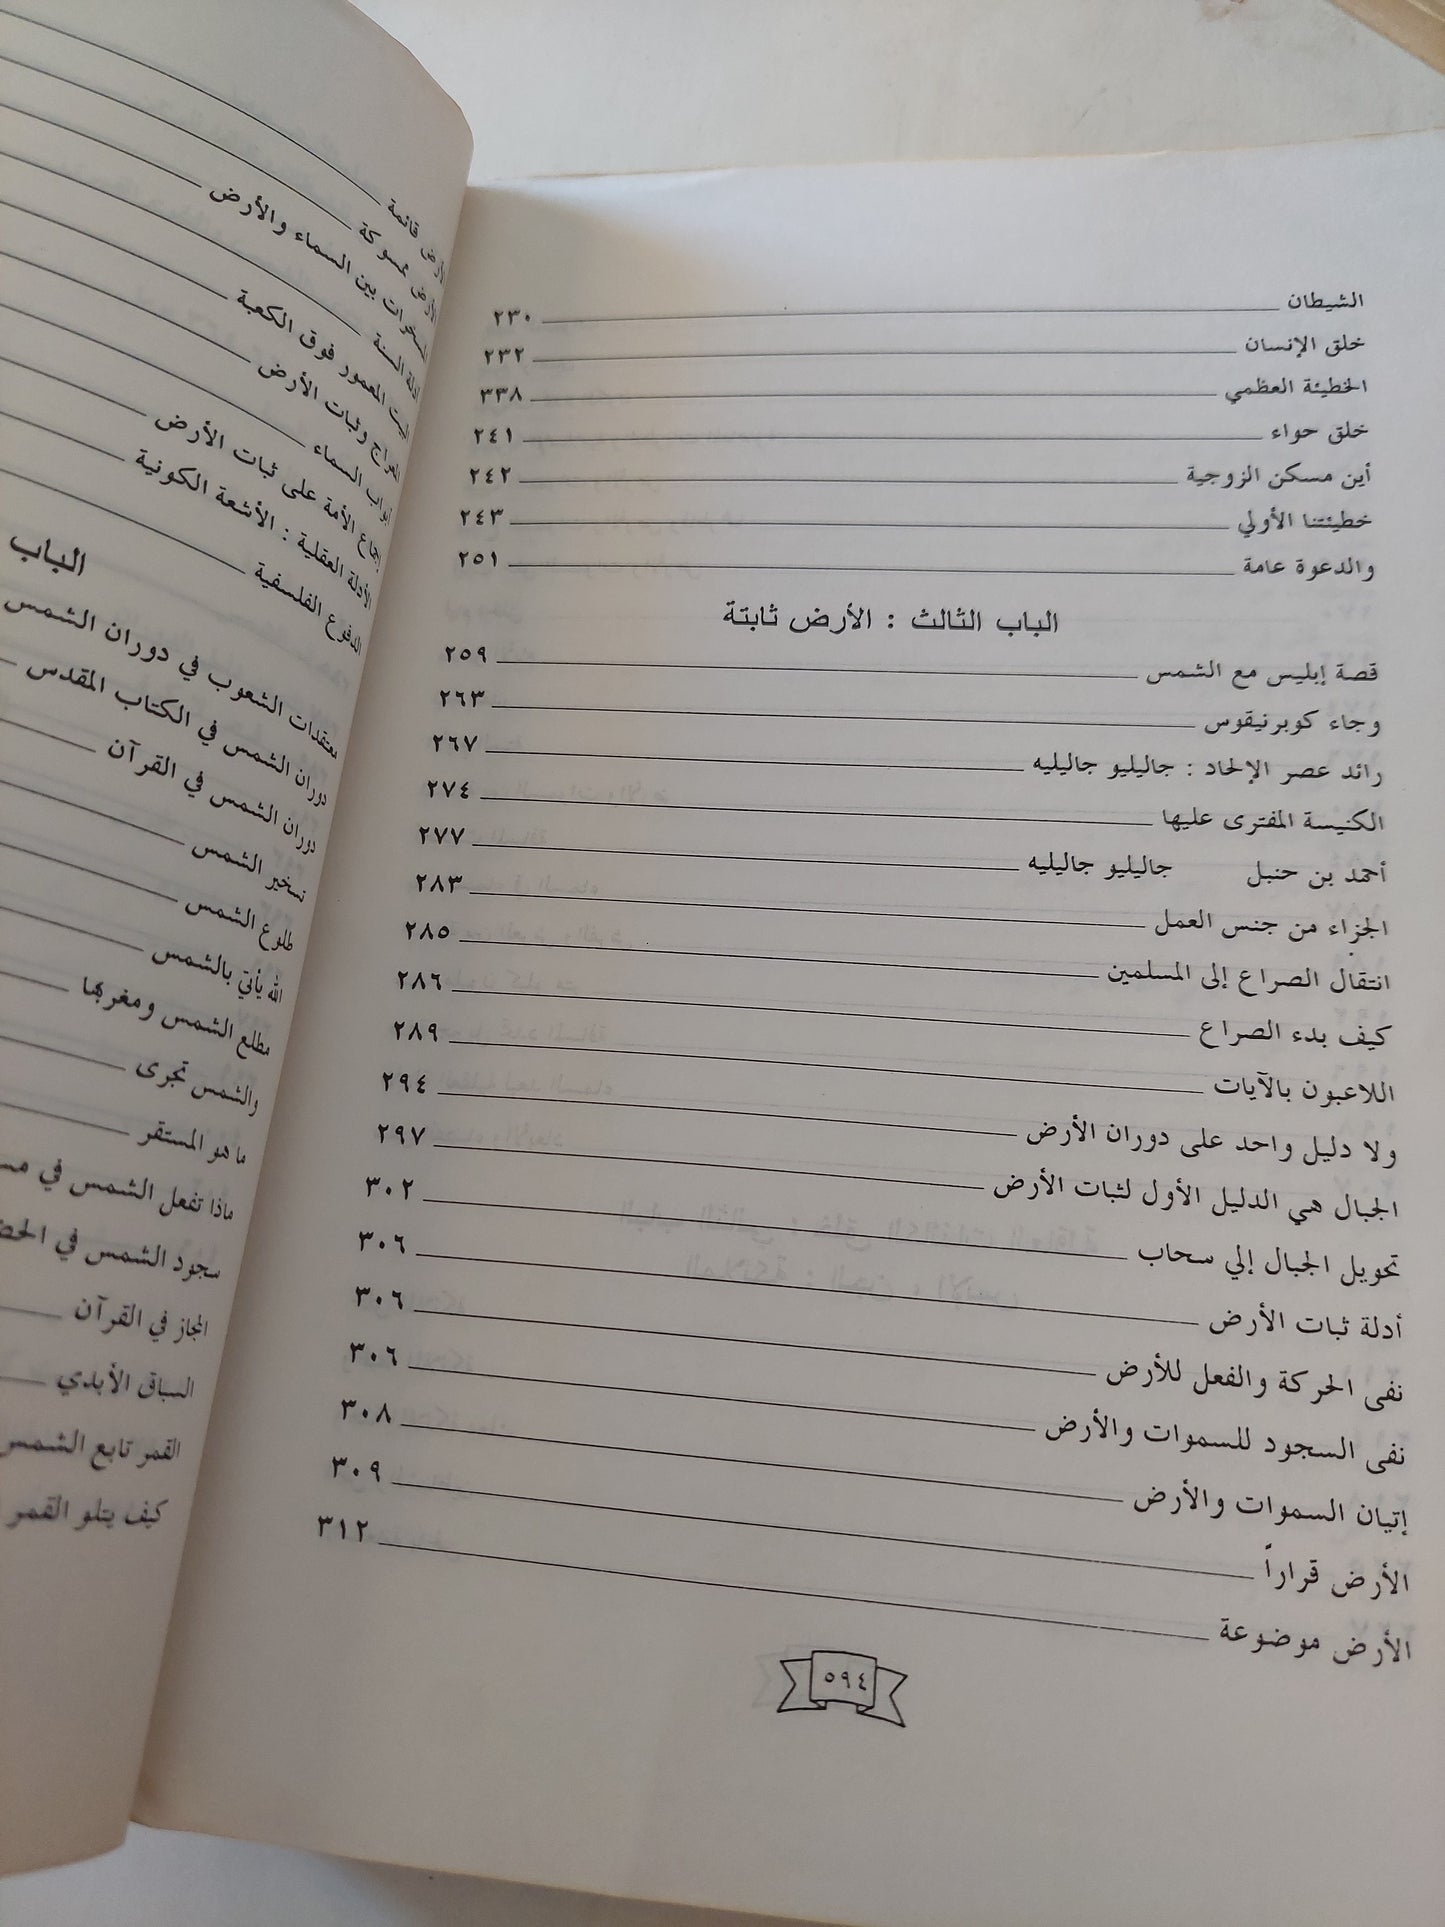 الشيطان ٢٣٠
خلق الإنسان ٢٣٢
الخطيئة العظمي ٣٣٨
خلق حواء ٢٤١
أين مسكن الزوجية ٢٤٢
خطيئتنا الأولي ٢٤٣
والدعوة عامة ٢٥١
الباب الثالث : الأرض ثابتة
قصة إبليس مع الشمس ٢٥٩
وجاء كوبرنيقوس ٢٦٣
رائد عصر الإلحاد : جاليليو جاليليه ٢٦٧
الكنيسة المفترى عليها ٢٧٤
أحمد بن حنبل جاليليو جاليليه ٢٧٧
الجزاء من جنس العمل ٢٨٣
انتقال الصراع إلى المسلمين ٢٨٥
كيف بدء الصراع ٢٨٦
اللاعبون بالآيات ٢٨٩
ولا دليل واحد على دوران الأرض ٢٩٤
الجبال هي الدليل الأول لثبات الأرض ٢٩٧
تحويل الجبال إلي سحاب ٣٠٢
أدلة ثبات الأرض ٣٠٦
نفى الحركة والفعل للأرض ٣٠٦
نفى السجود للسموات والأرض ٣٠٦
إتيان السموات والأرض ٣٠٨
الأرض قراراً ٣٠٩
الأرض موضوعة ٣١٢
٥٩٤
الأرض قائمة
الأرض ممسوكة
المسخرات بين السماء والأرض
أدلة السنة
البيت المعمور فوق الكعبة
المعراج وثبات الأرض
أبواب السماء
إجماع الأمة على ثبات الأرض
الأدلة العقلية : الأشعة الكونية
الدفوع الفلسفية
الباب
معتقدات الشعوب في دوران الشمس
دوران الشمس في الكتاب المقدس
دوران الشمس في القرآن
تسخير الشمس
طلوع الشمس
الله يأتي بالشمس
مطلع الشمس ومغربها
والشمس تجرى
ما هو المستقر
ماذا تفعل الشمس في
سجود الشمس في
المجاز في القرآن
السباق الأبدي
القمر تابع الشمس
كيف يتلو القمر